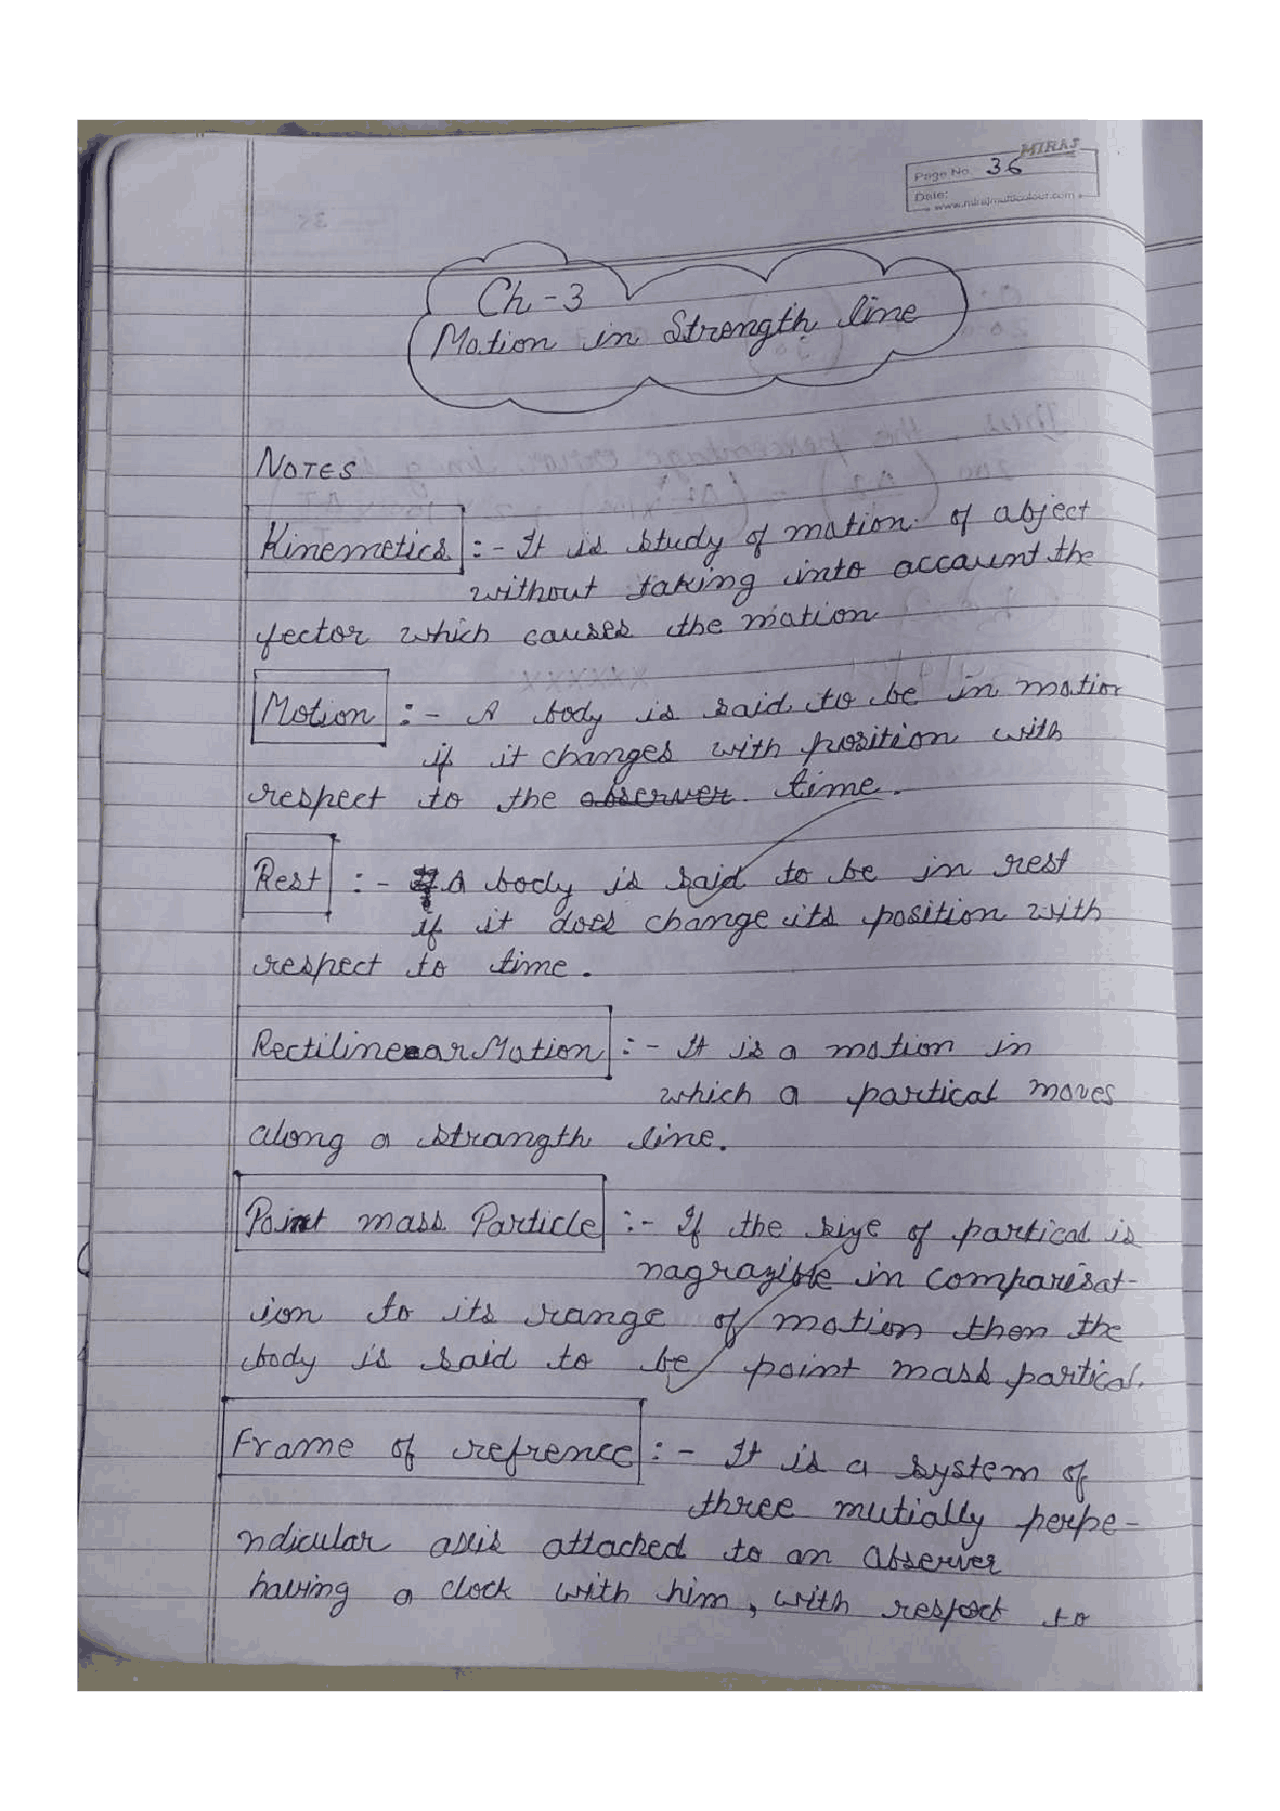 MIRAJ
Page No. 36
Date:
www.mirajmulticolour.com
Ch-3
Motion in Strength line
NOTES
Kinemetics :- It is study of motion of abject
without taking into accaunt the
fector which causes the motion
Motion :- A body is said to be in motion
if it changes with position with
respect to the observer time.
Rest :- A body is said to be in rest
if it does change its position with
respect to time.
Rectilinear Motion :- It is a motion in
which a partical moves
along a strangth line.
Point mass Particle :- If the size of partical is
nagrazible in comparisat-
ion to its range of motion then the
body is said to be point mass partical.
Frame of refrence :- It is a system of
three mutially perpe-
ndicular axis attached to an abserver
having a clock with him, with respect to